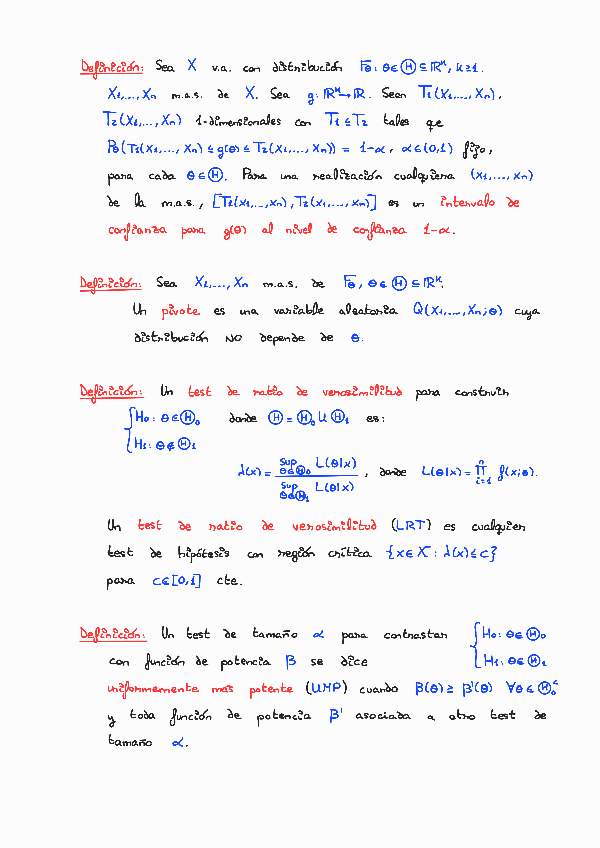 Definición: Sea X v.a. con distribución F_θ: θ∈Θ⊆ℝᴷ, k≥1.
X₁,..., Xₙ m.a.s. de X. Sea g: ℝᴷ→ℝ. Sean T₁(X₁,..., Xₙ),
T₂(X₁,..., Xₙ) 1-dimensionales con T₁≤T₂ tales que
P_θ(T₁(X₁,..., Xₙ) ≤ g(θ) ≤ T₂(X₁,..., Xₙ)) = 1-α, α∈(0,1) fijo,
para cada θ∈Θ. Para una realización cualquiera (x₁,..., xₙ)
de la m.a.s., [T₁(x₁,..., xₙ), T₂(x₁,..., xₙ)] es un intervalo de
confianza para g(θ) al nivel de confianza 1-α.
Definición: Sea X₁,..., Xₙ m.a.s. de F_θ, θ∈Θ⊆ℝᴷ.
Un pivote es una variable aleatoria Q(X₁,..., Xₙ; θ) cuya
distribución NO depende de θ.
Definición: Un test de ratio de verosimilitud para construir
{H₀: θ∈Θ₀ donde Θ = Θ₀ ∪ Θ₁ es:
H₁: θ∉Θ₁
λ(x) = sup_{θ∈Θ₀} L(θ|x) / sup_{θ∈Θ₁} L(θ|x), donde L(θ|x) = ∏_{i=1}^{n} f(xᵢ; θ).
Un test de ratio de verosimilitud (LRT) es cualquier
test de hipótesis con región crítica {x∈X: λ(x)≤c}
para c∈[0,1] cte.
Definición: Un test de tamaño α para contrastar {H₀: θ∈Θ₀
con función de potencia β se dice H₁: θ∈Θ₁
uniformemente más potente (UMP) cuando β(θ) ≥ β'(θ) ∀θ∈Θ₀ᶜ
y toda función de potencia β' asociada a otro test de
tamaño α.